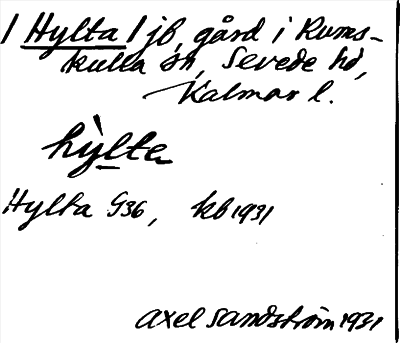 / Hylta / jb, gård i Rums-
kulla sn, Sevede hd,
Kalmar l.
hỳlta
Hylta G36, kb 1931
Axel Sandström 1931